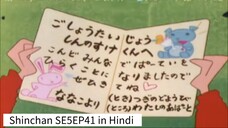 ごしょうたい
じょう
しんのすけくんへ
こんど みんなで ぱーてぃを
ひらくことに なりましたので
ぜひ きてね
ななこより
(とき)つぎのどようび
(ところ)わたしの
Shinchan SE5EP41 in Hindi